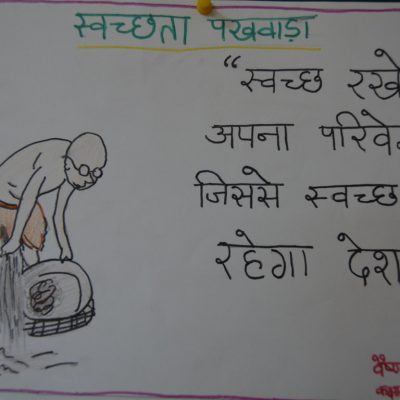 स्वच्छता पखवाड़ा
“स्वच्छ रखे
अपना परिवे
जिससे स्वच्छ
रहेगा देश